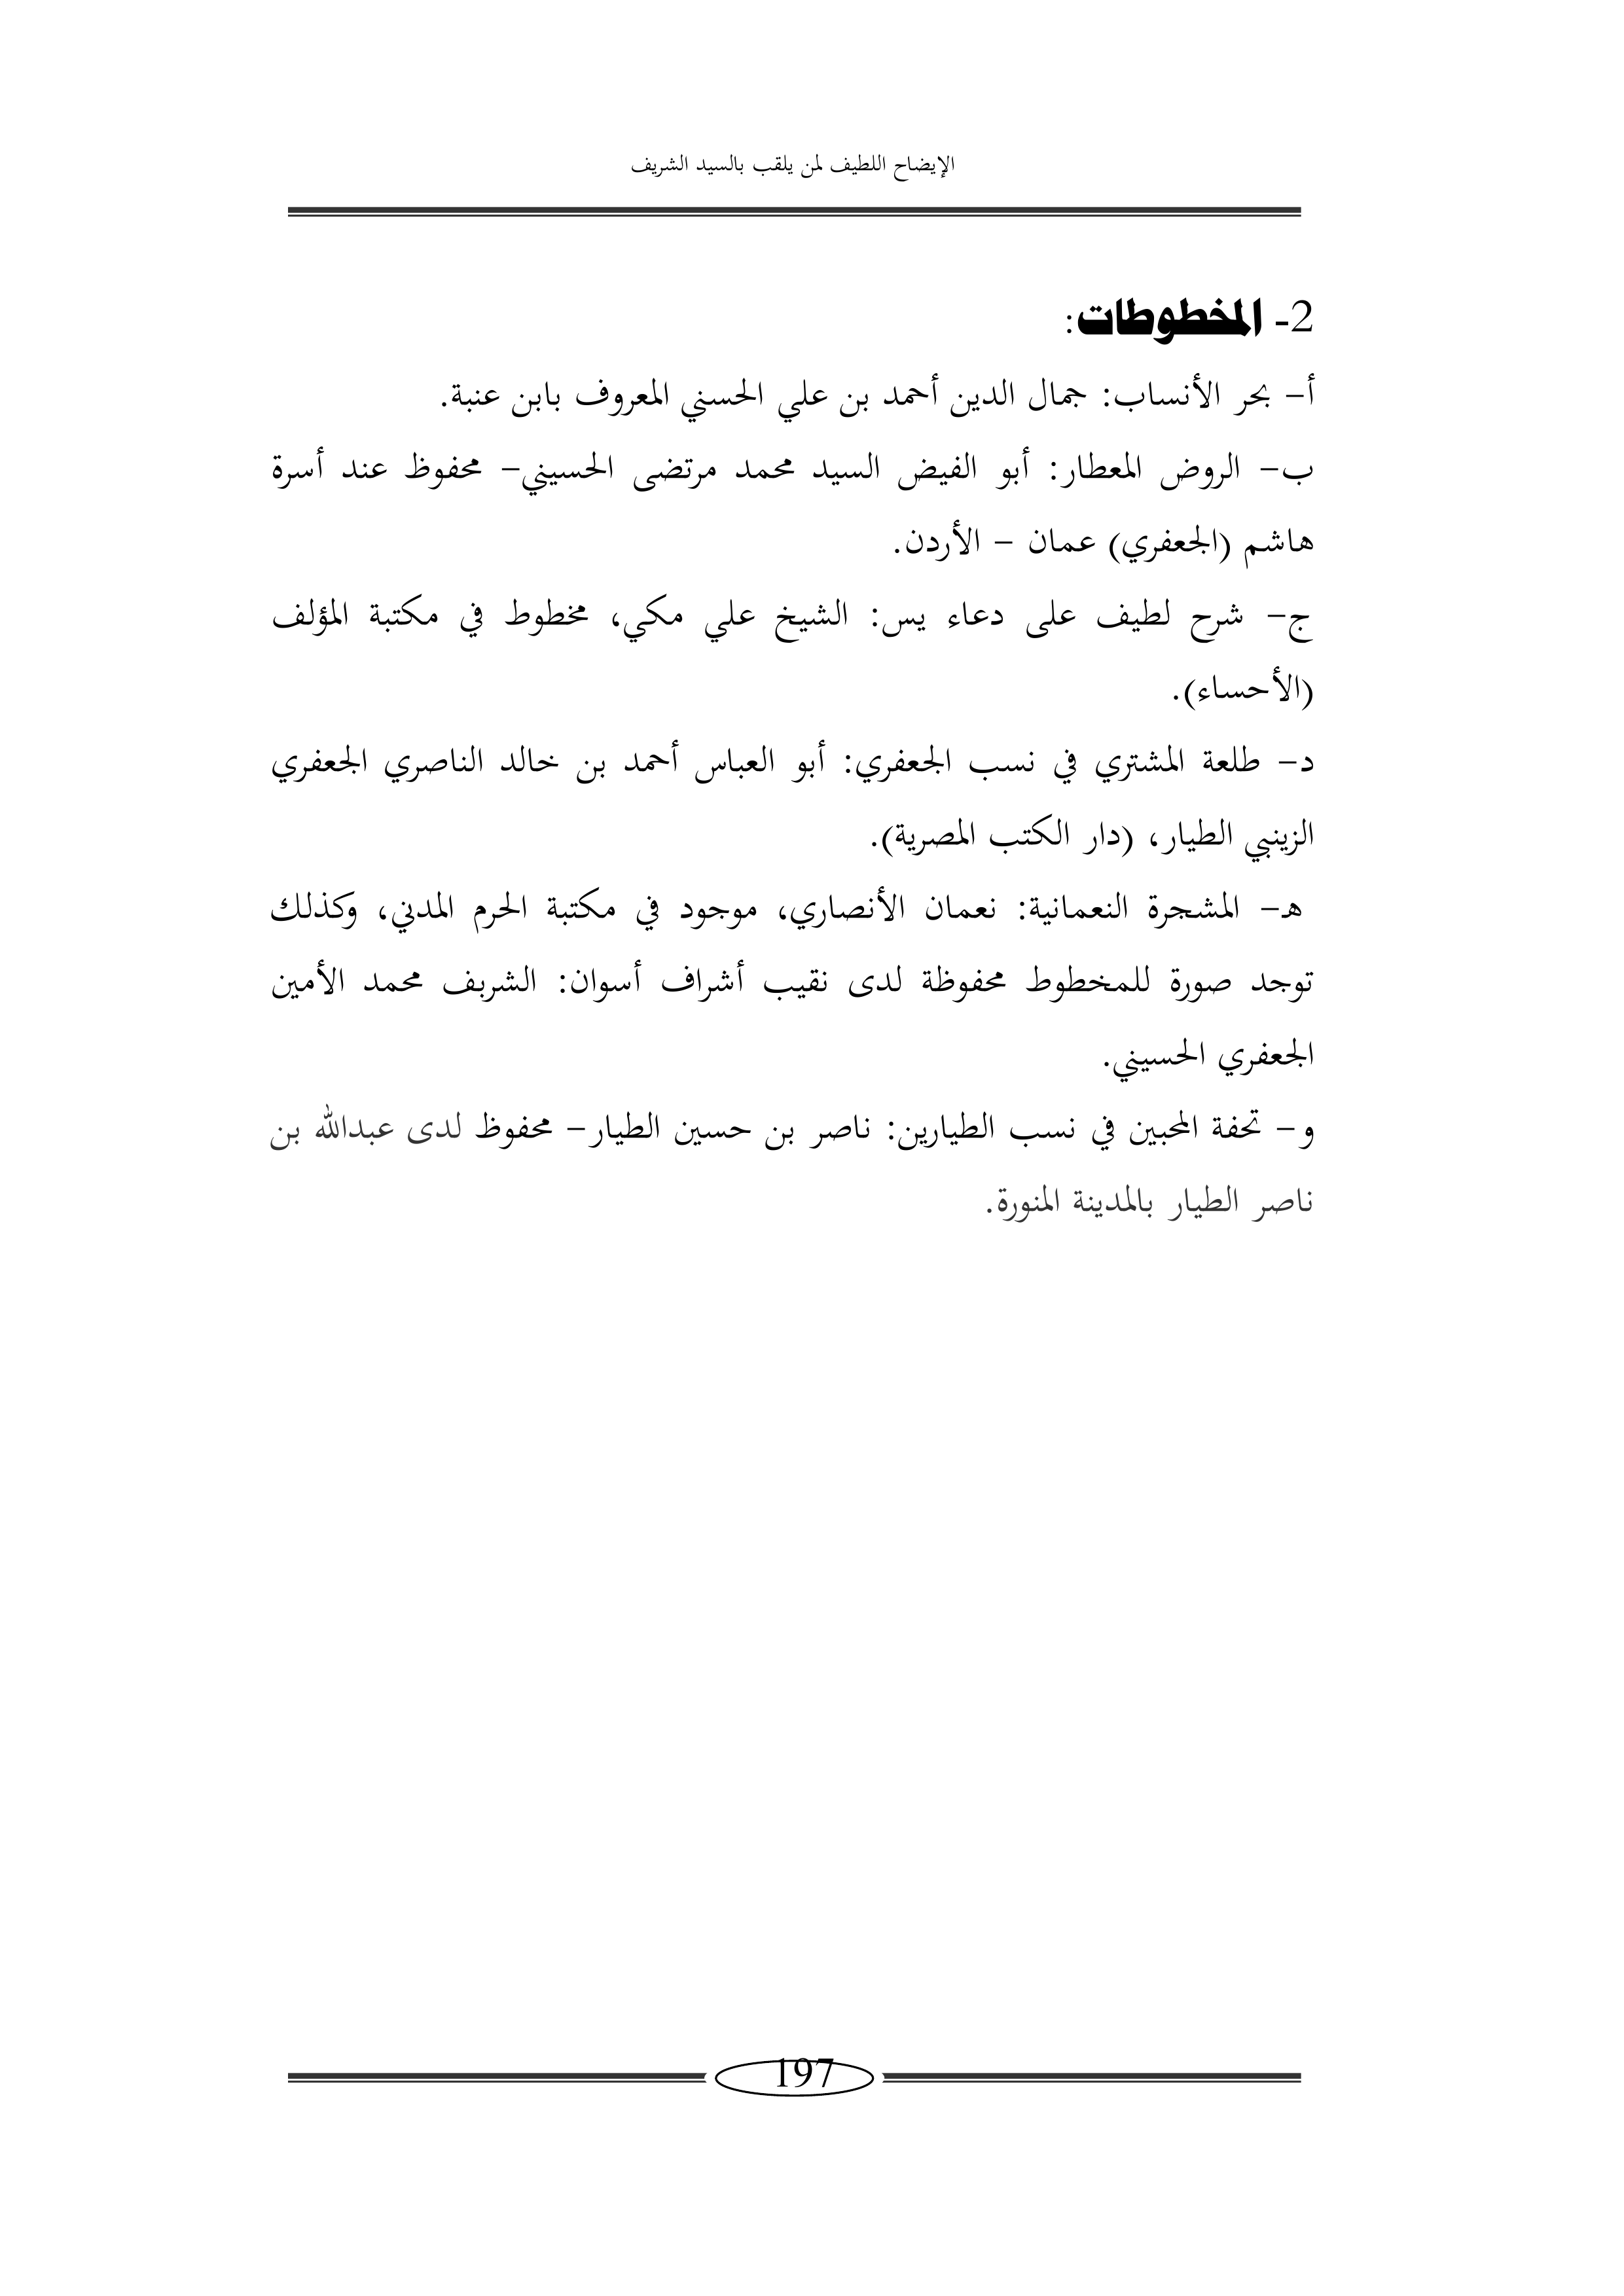 الإيضاح اللطيف لمن يلقب بالسيد الشريف
2- المخطوطات:
أ- بحر الأنساب: جمال الدين أحمد بن علي الحسني المعروف بابن عنبة.
ب- الروض المعطار: أبو الفيض السيد محمد مرتضى الحسيني- محفوظ عند أسرة
هاشم (الجعفري) عمان - الأردن.
ج- شرح لطيف على دعاء يس: الشيخ علي مكي، مخطوط في مكتبة المؤلف
(الأحساء).
د- طلعة المشتري في نسب الجعفري: أبو العباس أحمد بن خالد الناصري الجعفري
الزينبي الطيار، (دار الكتب المصرية).
هـ- المشجرة النعمانية: نعمان الأنصاري، موجود في مكتبة الحرم المدني، وكذلك
توجد صورة للمخطوط محفوظة لدى نقيب أشراف أسوان: الشربف محمد الأمين
الجعفري الحسيني.
و- تحفة المحبين في نسب الطيارين: ناصر بن حسين الطيار- محفوظ لدى عبدالله بن
ناصر الطيار بالمدينة المنورة.
197